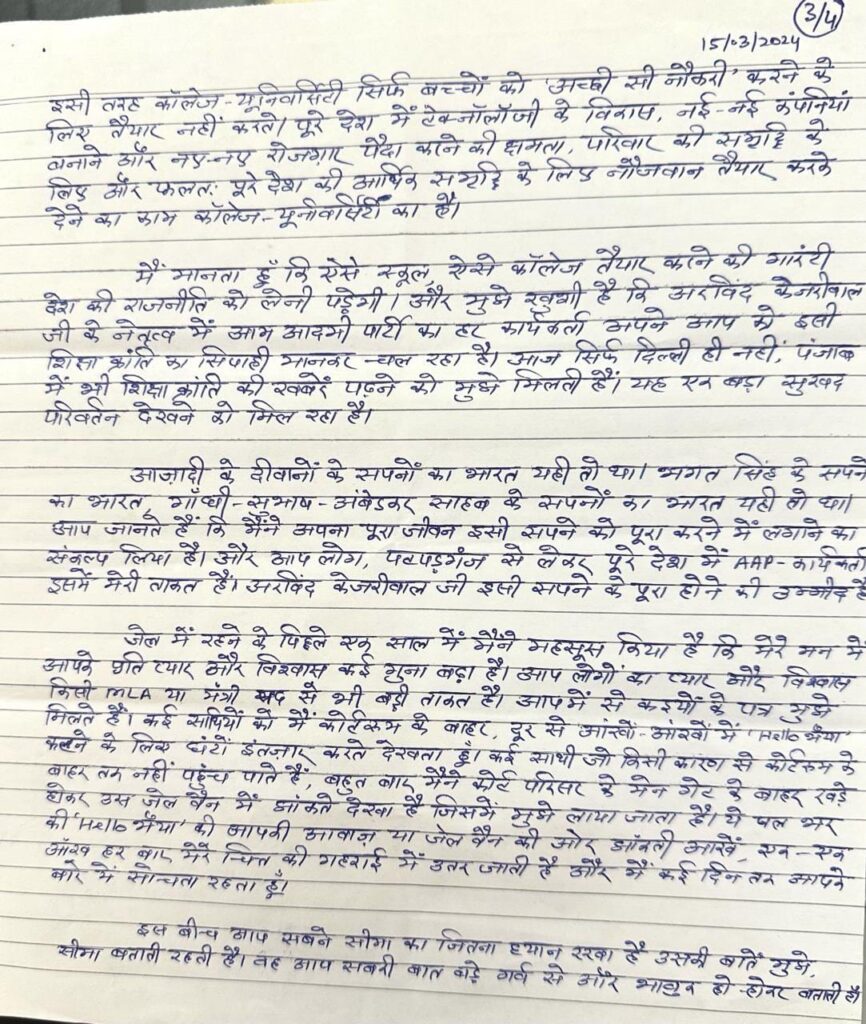 3/4
15/03/2024
इसी तरह कॉलेज-यूनिवर्सिटी सिर्फ बच्चों को 'अच्छी सी नौकरी' करने के
लिए तैयार नहीं करते। पूरे देश में टेक्नॉलॉजी के विकास, नई-नई कंपनियां
बनाने और नए-नए रोजगार पैदा करने की क्षमता, परिवार की समृद्धि के
लिए और फलतः पूरे देश की आर्थिक समृद्धि के लिए नौजवान तैयार करके
देने का काम कॉलेज-यूनीवर्सिटी का है।
मैं मानता हूँ कि ऐसे स्कूल, ऐसे कॉलेज तैयार करने की गारंटी
देश की राजनीति को लेनी पड़ेगी। और मुझे खुशी है कि अरविंद केजरीवाल
जी के नेतृत्व में आम आदमी पार्टी का हर कार्यकर्ता अपने आप को इसी
शिक्षा क्रांति का सिपाही मानकर चल रहा है। आज सिर्फ दिल्ली ही नहीं, पंजाब
में भी शिक्षा क्रांति की खबरें पढ़ने को मुझे मिलती हैं। यह एक बड़ा सुखद
परिवर्तन देखने को मिल रहा है।
आज़ादी के दीवानों के सपनों का भारत यही तो था। भगत सिंह के सपने
का भारत, गाँधी-सुभाष-अंबेडकर साहब के सपनों का भारत यही तो था।
आप जानते हैं कि मैंने अपना पूरा जीवन इसी सपने को पूरा करने में लगाने का
संकल्प लिया है। और आप लोग, पटपड़गंज से लेकर पूरे देश में AAP-कार्यकर्ता
इसमें मेरी ताकत हैं। अरविंद केजरीवाल जी इसी सपने के पूरा होने की उम्मीद हैं
जेल में रहने के पिछले एक साल में मैंने महसूस किया है कि मेरे मन में
आपके प्रति प्यार और विश्वास कई गुना बढ़ा है। आप लोगों का प्यार और विश्वास
किसी MLA या मंत्री पद से भी बड़ी ताकत है। आपमें से कइयों के पत्र मुझे
मिलते हैं। कई साथियों को मैं कोर्टरूम के बाहर, दूर से आंखों-आंखों में 'Hello भैया'
कहने के लिए घंटों इंतजार करते देखता हूँ। कई साथी जो किसी कारण से कोर्टरूम के
बाहर तक नहीं पहुंच पाते हैं, बहुत बार मैंने कोर्ट परिसर के मेन गेट के बाहर खड़े
होकर उस जेल वैन में झांकते देखा है जिसमें मुझे लाया जाता है। ये पल भर
की 'Hello भैया' की आपकी आवाज़ या जेल वैन की ओर झांकती आंखें, एक-एक
आँख हर बार मेरे चित्त की गहराई में उतर जाती है और मैं कई दिन तक आपके
बारे में सोचता रहता हूँ।
इस बीच आप सबने सीमा का जितना ध्यान रखा है उसकी बातें मुझे,
सीमा बताती रहती है। वह आप सबकी बात बड़े गर्व से और भावुक हो-होकर बताती है।